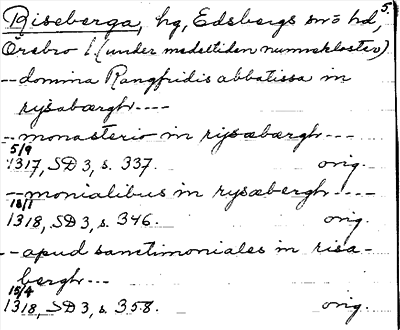 5.
Riseberga, hg, Edsbergs sn o hd,
Örebro l. (under medeltiden nunnekloster)
-- domina Rangfridis abbatissa in
rysabærgh ----
-- monasterio in rysæbærgh ---
5/9
1317, SD 3, s. 337. orig.
-- monialibus in rysæbergh ----
18/1
1318, SD 3, s. 346. orig.
-- apud sanctimoniales in risa-
bergh ---
15/4
1318, SD 3, s. 358. orig.